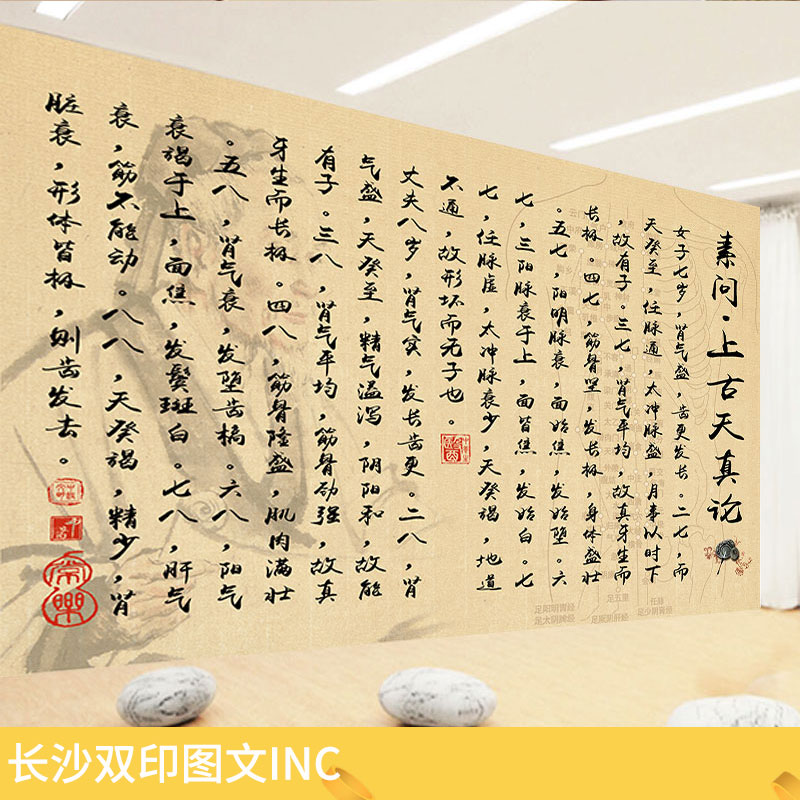 素问·上古天真论
女子七岁，肾气盛，齿更发长。二七，而
天癸至，任脉通，太冲脉盛，月事以时下
，故有子。三七，肾气平均，故真牙生而
长极。四七，筋骨坚，发长极，身体盛壮
。五七，阳明脉衰，面始焦，发始堕。六
七，三阳脉衰于上，面皆焦，发始白。七
七，任脉虚，太冲脉衰少，天癸竭，地道
不通，故形坏而无子也。
丈夫八岁，肾气实，发长齿更。二八，肾
气盛，天癸至，精气溢泻，阴阳和，故能
有子。三八，肾气平均，筋骨劲强，故真
牙生而长极。四八，筋骨隆盛，肌肉满壮
。五八，肾气衰，发堕齿槁。六八，阳气
衰竭于上，面焦，发鬓斑白。七八，肝气
衰，筋不能动。八八，天癸竭，精少，肾
脏衰，形体皆极，则齿发去。
足阳明胃经
足太阴脾经
足厥阴肝经
任脉
足少阴肾经
长沙双印图文INC